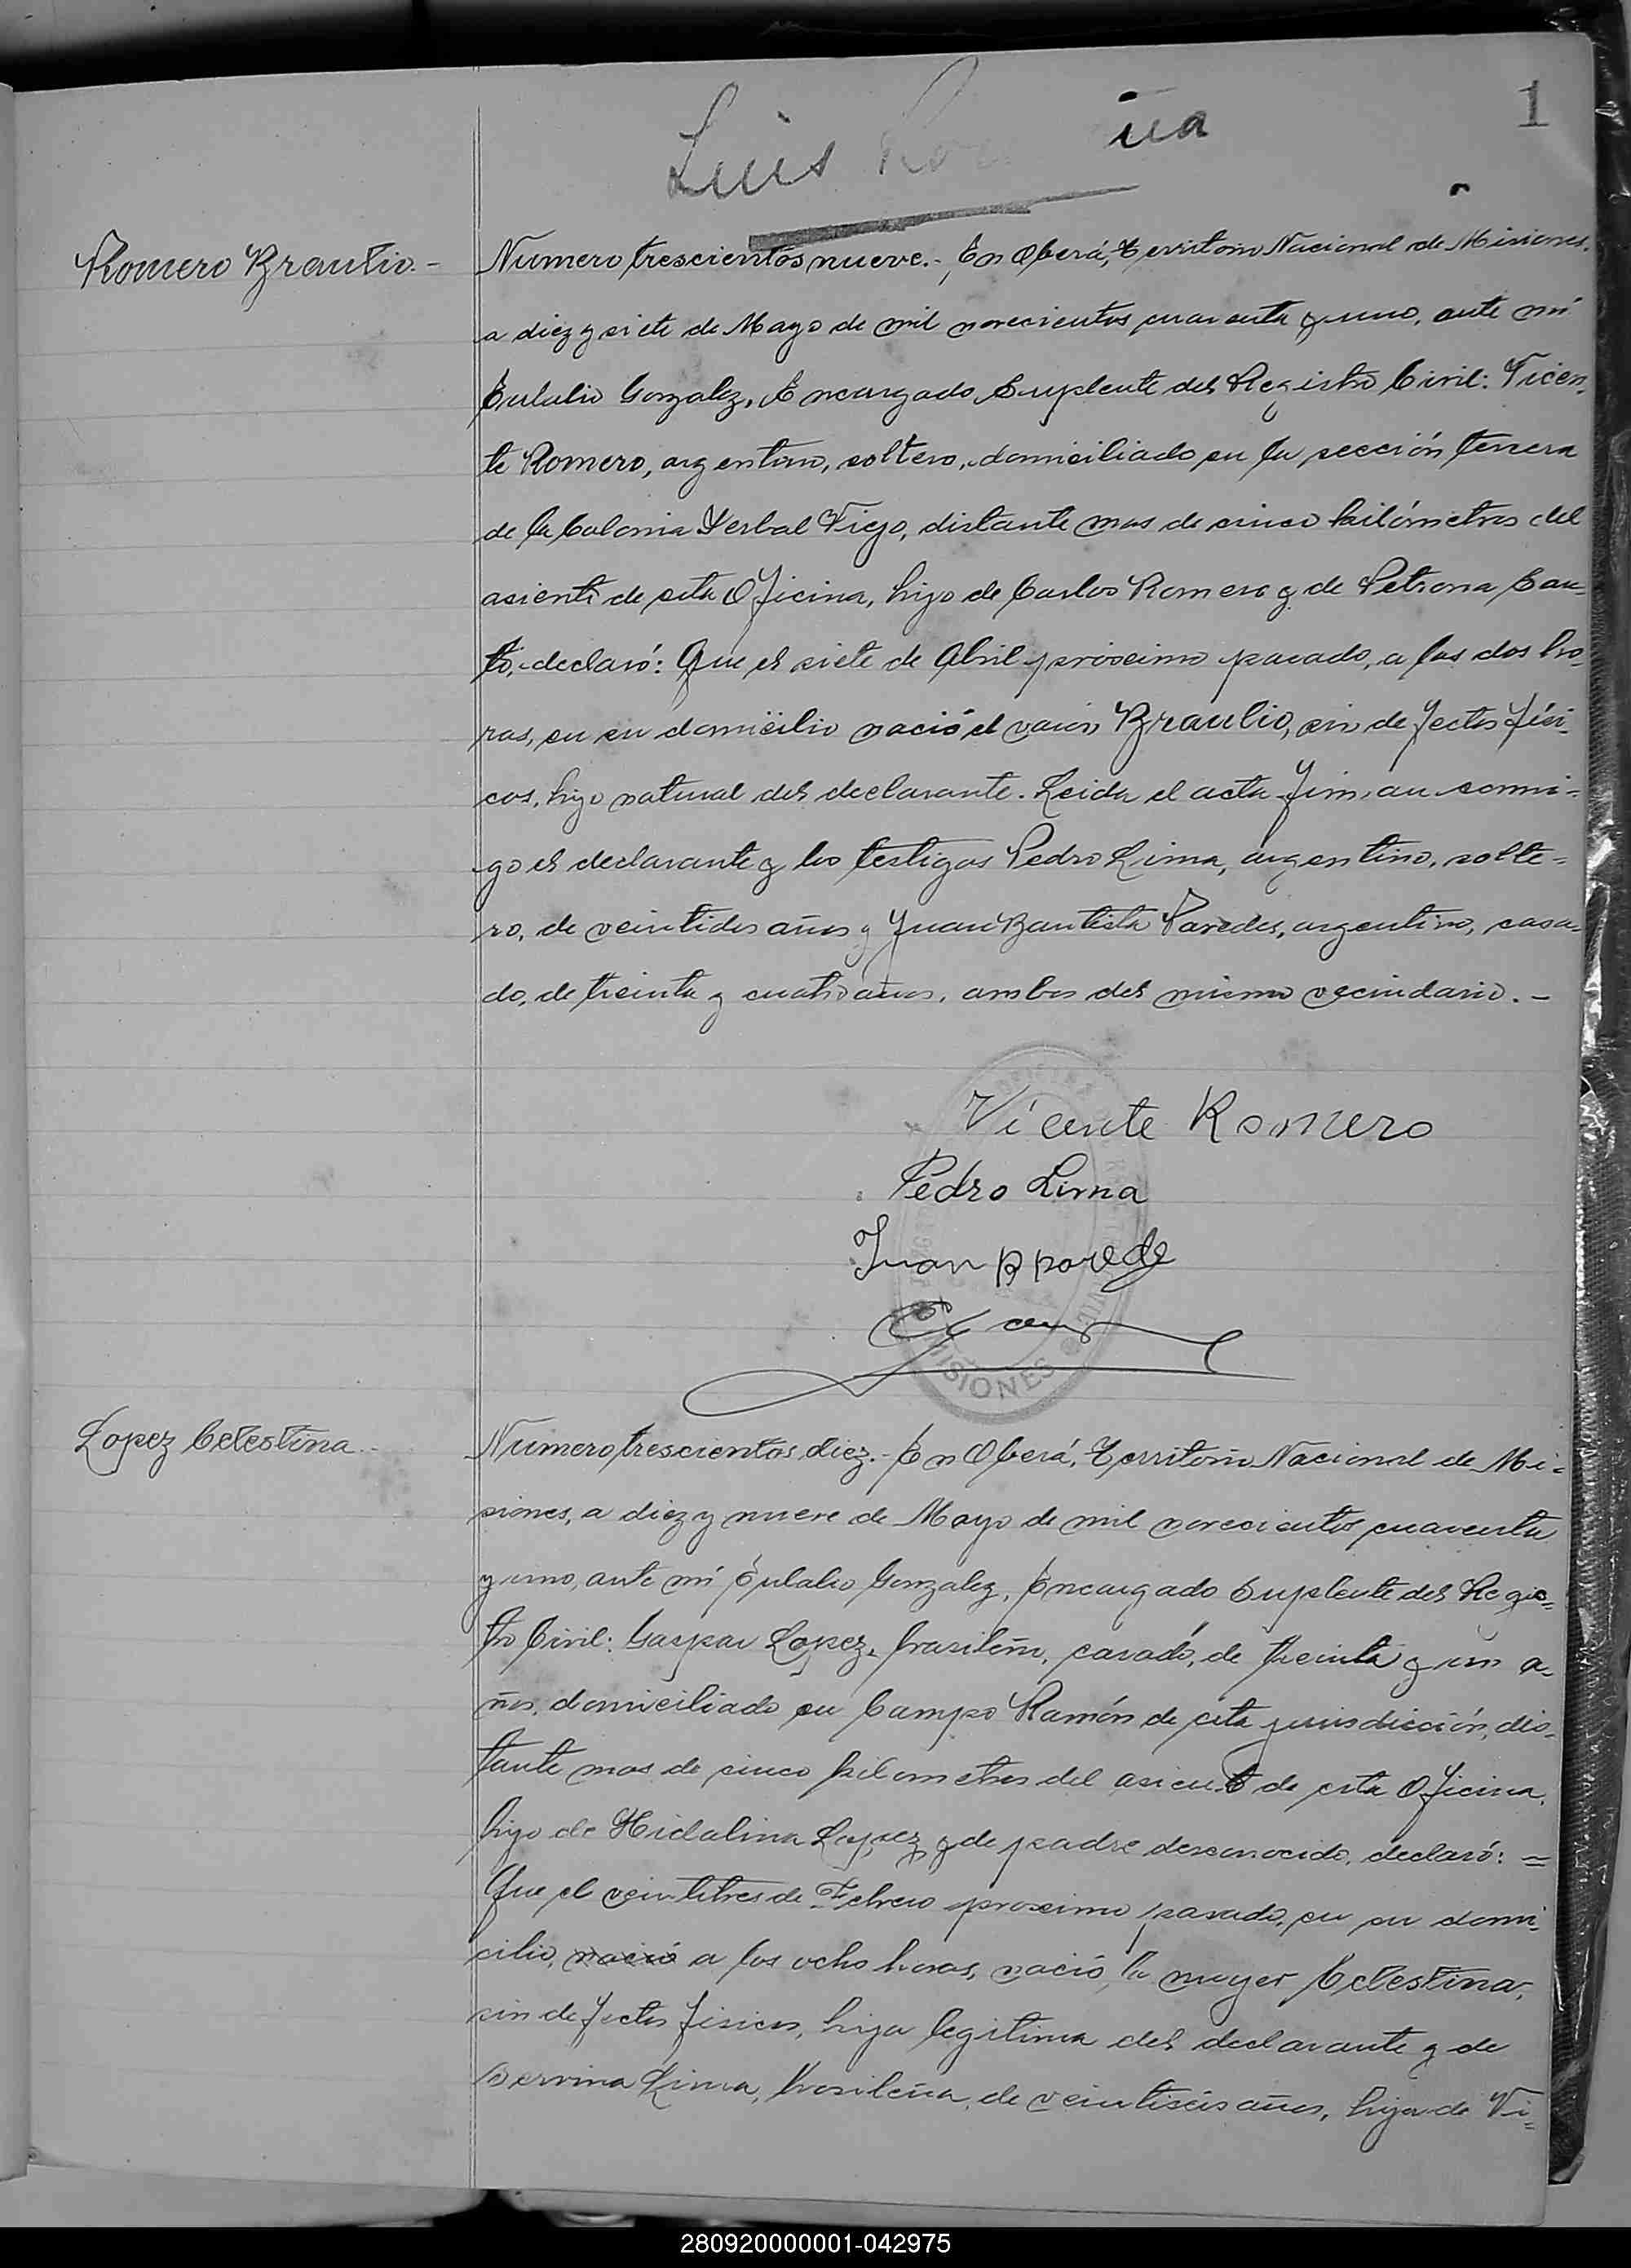 1
Luis
Romero Braulio.-
Numero trescientos nueve.- En Oberá, Territorio Nacional de Misiones,
a diez y siete de Mayo de mil novecientos cuarenta y uno, ante mí
Eulalio Gonzalez, Encargado Suplente del Registro Civil: Vicen-
te Romero, argentino, soltero, domiciliado en la sección tercera
de la Colonia Yerbal Viejo, distante mas de cinco kilómetros del
asiento de esta Oficina, hijo de Carlos Romero y de Petrona
declaró: Que el siete de Abril próximo pasado, a las dos ho-
ras, en su domicilio nació el varón Braulio, sin defectos físi-
cos, hijo natural del declarante. Leida el acta firman conmi-
go el declarante y los testigos Pedro Lima, argentino, solte-
ro, de veintidos años y Juan Bautista Paredes, argentino, casa-
do, de treinta y cuatro años, ambos del mismo vecindario.-
Vicente Romero
Pedro Lima
Juan B parede
MISIONES
Lopez Celestina
Numero trescientos diez.- En Oberá, Territorio Nacional de Mi-
siones, a diez y nueve de Mayo de mil novecientos cuarenta
y uno, ante mí Eulalio Gonzalez, Encargado Suplente del Regis-
tro Civil: Gaspar Lopez, brasileño, casado, de treinta y un a-
ños, domiciliado en Campo Ramón de esta jurisdicción, dis-
tante mas de cinco kilometros del asiento de esta Oficina,
hijo de Hidalina Lopez y de padre desconocido, declaró: =
Que el veintitres de Febrero proximo pasado, en su domi-
cilio, nació a las ocho horas, nació la mujer Celestina,
sin defectos fisicos, hija legitima del declarante y de
Lima, brasileña, de veintiseis años, hija de Vi-
280920000001-042975